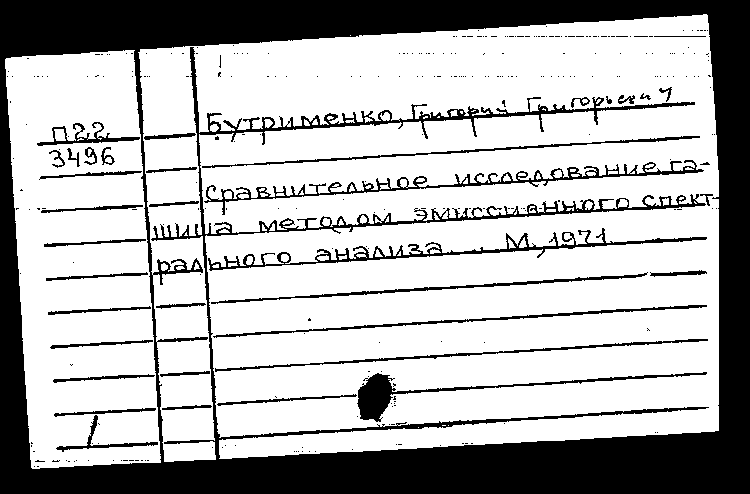 Бутрименко, Григорий Григорьевич
П22
3496
сравнительное исследование га-
шиша методом эмиссианного спект-
рального анализа... М., 1971.